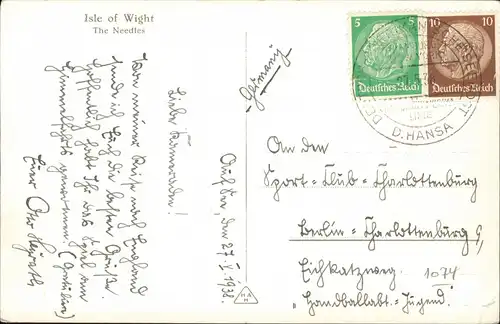 Isle of Wight
The Needles
(Germany)
Auf See, den 27. V. 1938.
Liebe Kameraden!
Von meiner Reise nach England
sende ich Euch die besten Grüße.
Hoffentlich habt Ihr das Spiel am
Himmelfahrts gewonnen.
Euer Otto
5
5
Deutsches Reich
10
10
Deutsches Reich
D. HANSA
An den
Sport-Club-Charlottenburg
Berlin-Charlottenburg 9,
Eichkatzweg.
1074
"Handballabt.-Jugend."